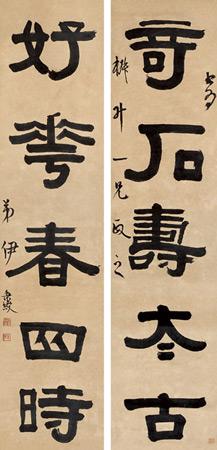 奇石壽太古
升一兄政之
好華春四時
弟伊秉綬